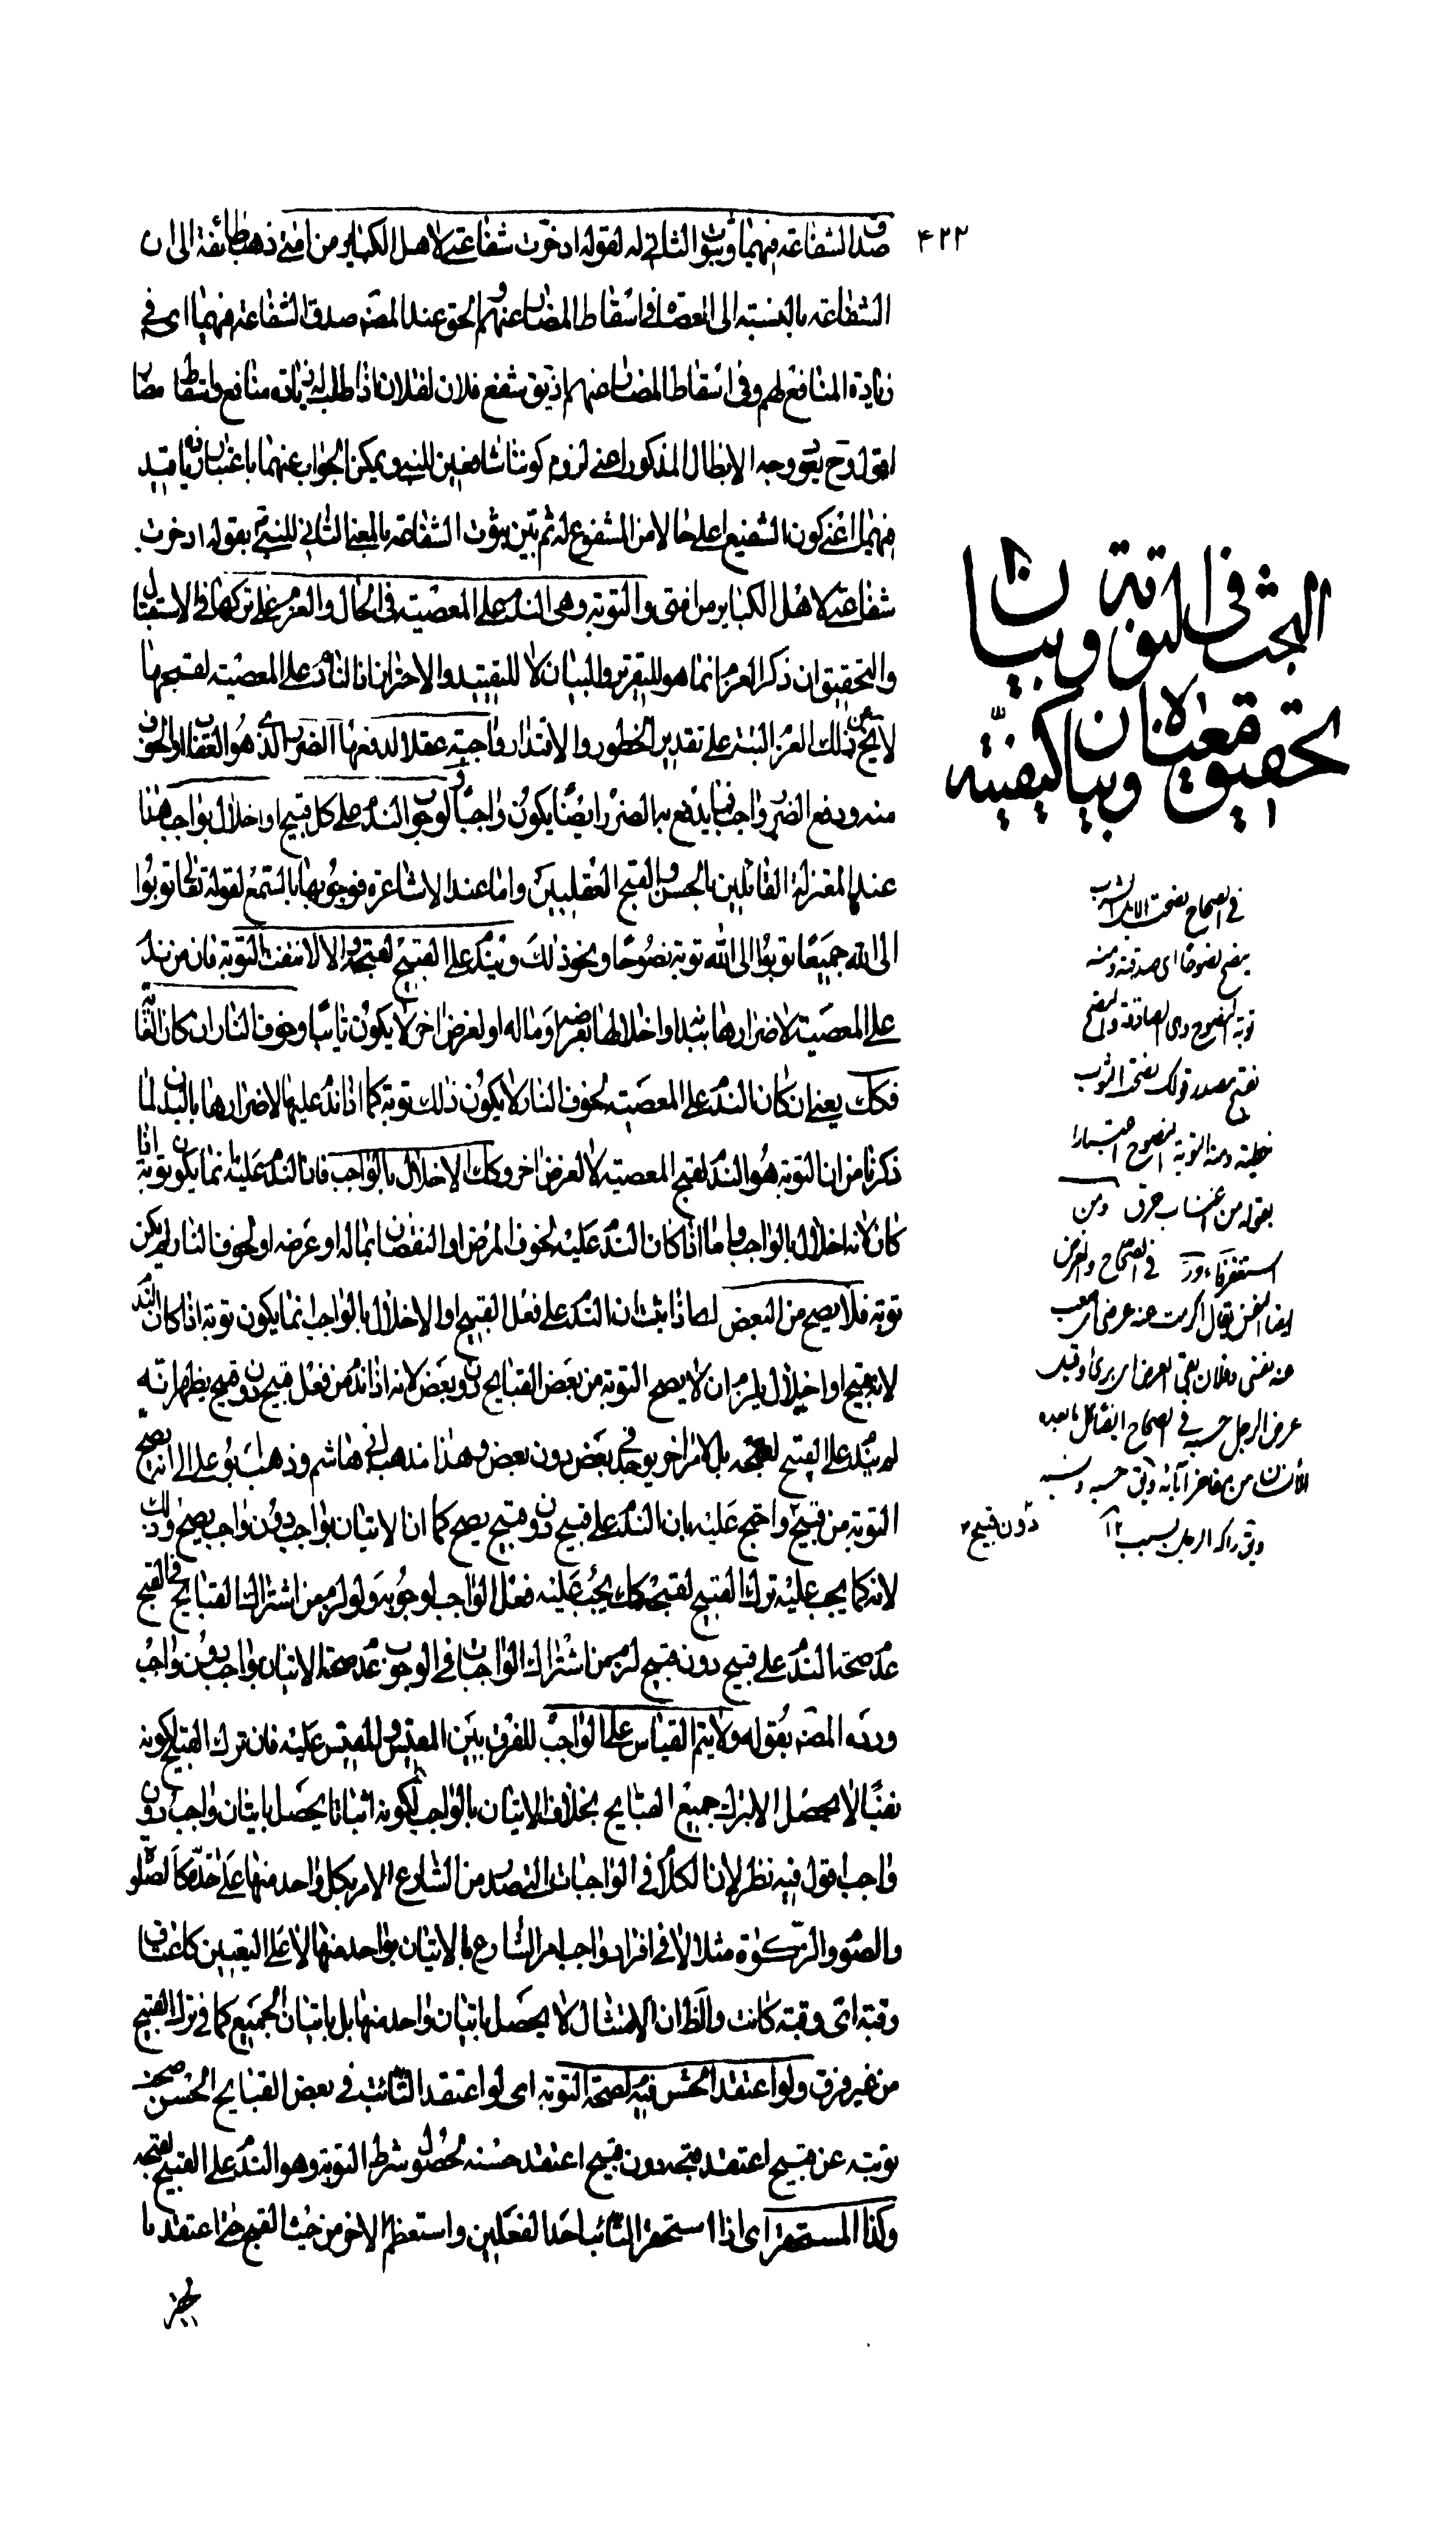 ۴۲۲
صدق الشفاعة فيهما وثبوت الثاني له لقوله ادخرت شفاعتي لاهل الكبائر من امتي ذهب طائفة الى ان
الشفاعة بالنسبة الى العصاة في اسقاط المضار عنهم والحق عند المصنف صدق الشفاعة فيهما اى في
زيادة المنافع لهم وفى اسقاط المضار عنهم اذ يق شفع فلان لفلان اذا طلب له زيادة منافع او اسقاط مضار
اقول وح يعود وجه الابطال المذكور اعنى لزوم كوننا شافعين للنبي ويمكن الجواب عنهما باعتبار زيادة قيد
فيهما اعنى كون الشفيع اعلى حالا من المشفوع له ثم بين ثبوت الشفاعة بالمعنى الثاني للنبي بقوله ادخرت
شفاعتى لاهل الكبائر من امتى والتوبة وهى الندم على المعصية فى الحال والعزم على تركها فى الاستقبال
والتحقيق ان ذكر العزم انما هو للتقرير والبيان لا للتقييد والاحتراز فان النادم على المعصية لقبحها
لا يخ عن ذلك العزم البتة على تقدير الخطور والاقتدار واجبة عقلا لدفعها الضرر الذى هو العقاب او الخوف
منه ودفع الضرر واجب فما يدفع به الضرر ايضا يكون واجبا ولوجوب الندم على كل قبيح او اخلال بواجب هذا
عند المعتزلة القائلين بالحسن والقبح العقليين واما عند الاشاعرة فوجوبها بالسمع لقوله تعالى توبوا
الى الله جميعا توبوا الى الله توبة نصوحا ونحو ذلك ويندم على القبيح لقبحه والا لانتفت التوبة فان من ندم
على المعصية لاضرارها ببدنه او اخلالها بعرضه او ماله او لغرض اخر لا يكون تائبا وخوف النار ان كان الغاية
فكك يعنى ان كان الندم على المعصية لخوف النار لا يكون ذلك توبة كما اذا ندم عليها لاضرارها بالبدن لما
ذكرنا من ان التوبة هو الندم لقبح المعصية لا لغرض اخر وكذا الاخلال بالواجب فان الندم عليه انما يكون توبة اذا
كان لانه اخلال بالواجب واما اذا كان الندم عليه لخوف المرض او النقصان بماله او عرضه او لخوف النار لم يكن
توبة فلا يصح من البعض لما اذا ثبت ان الندم على فعل القبيح او الاخلال بالواجب انما يكون توبة اذا كان الندم
لانه قبيح او اخلال يلزم ان لا يصح التوبة من بعض القبايح دون بعض لانه اذا ندم من فعل قبيح دون قبيح يظهر انه
لم يندم على القبيح لقبحه بل لامر اخر يوجد في بعض دون بعض وهذا مذهب ابي هاشم وذهب ابو على الى انه يصح
التوبة من قبيح واحتج عليه بان الندم على قبيح دون قبيح يصح كما ان الاتيان بواجب دون واجب يصح وذلك
لانه كما يجب عليه ترك القبيح لقبحه كك يجب عليه فعل الواجب لوجوبه ولو لزم من اشتراك القبايح في القبح
عدم صحة الندم على قبيح دون قبيح لزم من اشتراك الواجبات في الوجوب عدم صحة الاتيان بواجب دون واجب
ورده المصنف بقوله ولا يتم القياس على الواجب للفرق بين المقيس والمقيس عليه فان ترك القبيح لكونه
نفيا لا يحصل الا بترك جميع القبايح بخلاف الاتيان بالواجب لكونه اثباتا يحصل باتيان واجب دون
واجب اقول فيه نظر لان الكلام في الواجبات التي صدر من الشارع الامر بكل واحد منها على حدة كالصلوة
والصوم والزكوة مثلا لا في افراد واجب امر الشارع بالاتيان بواحد منها لا على التعيين كاعتاق
رقبة اى رقبة كانت والظ ان الامتثال لا يحصل باتيان واحد منها بل باتيان الجميع كما في ترك القبيح
من غير فرق ولو اعتقد الحسن فيه لصحة التوبة اى لو اعتقد التائب في بعض القبايح الحسن صحت
توبته عن قبيح اعتقد قبحه دون قبيح اعتقد حسنه لحصول شرط التوبة وهو الندم على القبيح لقبحه
وكذا المستحقر اى اذا استحقر التائب احد الفعلين واستعظم الاخر من حيث القبح حتى اعتقد ان
البحث فى التوبة وبيان
تحقيق معناها وبيان كيفيته
فى الصحاح نصحت الابل الشرب
ينصح نصوحا اى صدقته ومنه
توبة النصوح وهى الصادقة والنصح
بفتح مصدر قولك نصحت الثوب
خطته ومنه التوبة النصوح اعتبارا
بقوله من اغتاب خرق ومن
استغفر رفأ فى الصحاح والعرض
ايضا النفس يقال اكرمت عنه عرضى اى صنت
عنه نفسى وفلان نقى العرض اى برئ وقيل
عرض الرجل حسبه فى الصحاح ايضا
الانسان من مفاخر آبائه ويق حسبه دينه
دون قبيح